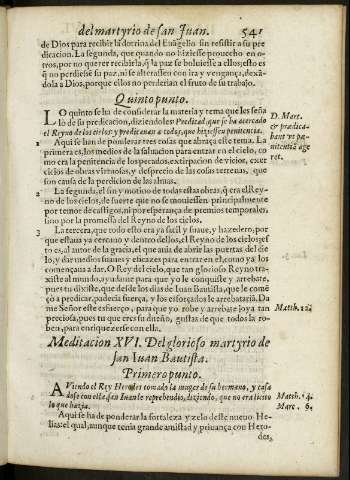 del martyrio de san Juan. 541
de Dios para recibir la dotrina del Euãgelio sin resistir a su pre
dicacion. La segunda, que quando no hiziesse prouecho en o-
tros, por no querer recibirla, q̃ la paz se boluiesse a ellos; esto es
q̃ no perdiesse su paz, ni se alterasse con ira y vengança, dexã-
dola a Dios, porque ellos no perderian el fruto de su trabajo.
Quinto punto.
LO quinto se ha de considerar la materia y tema que les seña
lò de su predicacion, diziendoles Predicad, que ja ha acercado
el Reyno de los cielos, y predicauan a todos, que hiziessen penitencia.
D. Marc.
& prædica-
bant vt pœ-
nitentiã age
rent.
1 Aqui se han de ponderar tres cosas que abraça este tema. La
primera es, los medios de la saluacion para entrar en el cielo, co
mo era la penitencia de los pecados, extirpacion de vicios, exer
cicios de obras virtuosas, y desprecio de las cosas terrenas, que
son causa de la perdicion de las almas.
2 La segunda, el fin y motiuo de todas estas obras, q̃ era el Rey-
no de los cielos, de suerte que no se mouiessen principalmente
por temor de castigos, ni por esperança de premios temporales,
sino por la promessa del Reyno de los cielos.
3 La tercera, que todo esto era ya facil y suaue, y hazedero, por
que estaua ya cercano y dentro dellos, el Reyno de los cielos; es
to es, al autor de la gracia, el que auia de abrir las puertas del cie
lo, y dar medios suaues y eficaces para entrar en el, como ya los
començaua a dar. O Rey del cielo, que tan glorioso Reyno tra-
xiste al mundo, ayudame para que yo le conquiste y arrebate,
pues tu dixiste, que desde los dias de Iuan Bautista, que le comẽ
çò a predicar, padecia fuerça, y los esforçados le arrebatariã. Da
me Señor este esfuerço, para que yo robe y arrebate joya tan
Matth. 11.
preciosa, pues tu que eres su dueño, gustas de que todos la ro-
ben, para enriquezerse con ella.
Meditacion XVI. Del glorioso martyrio de
san Iuan Bautista.
Primero punto.
AViendo el Rey Herodes tomado la muger de su hermano, y casa
dose con ella, san Iuan le reprehendio, diziendo, que no era licito
lo que hazia.
Matth. 14.
Marc. 6.
Aqui se ha de ponderar la fortaleza y zelo deste nueuo He-
lias: el qual, aunque tenia grande amistad y priuança con Hero-
des,